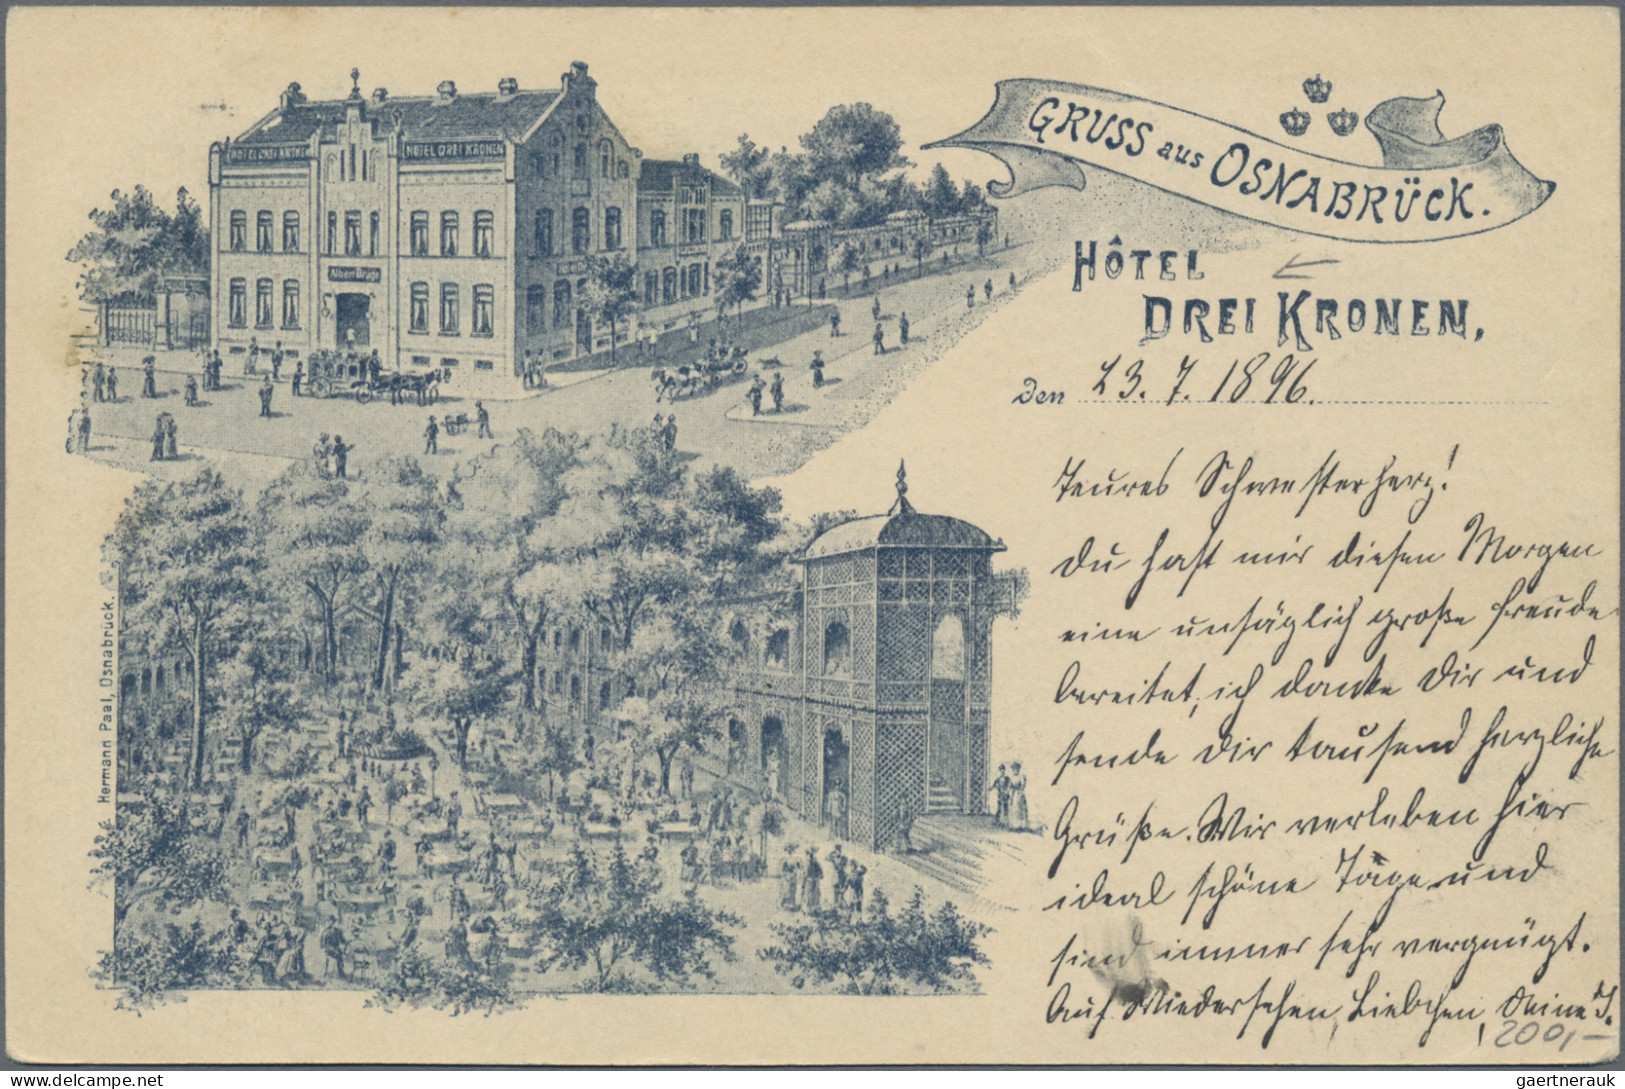 GRUSS aus OSNABRÜCK.
HÔTEL
DREI KRONEN,
den 23. 7. 1896.
HOTEL DREI KRONEN
HOTEL DREI KRONEN
Teures Schwesterherz!
Du hast mir diesen Morgen
eine unsäglich große Freude
bereitet, ich danke Dir und
sende Dir tausend herzliche
Grüße. Wir verleben hier
ideal schöne Tage und
sind immer sehr vergnügt.
Auf Wiedersehen, Liebchen, Deine J.
200,—
Hermann Paal, Osnabrück.
gaertnerauk